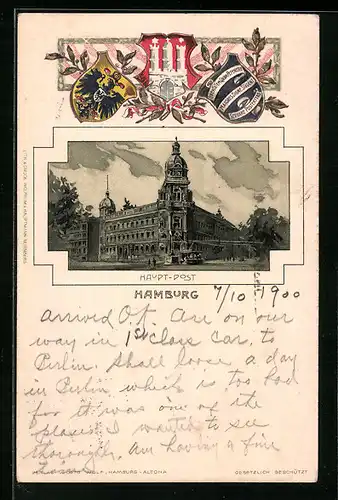 HAVPT-POST
HAMBURG 7/10 1900
arrived OK are on our
way in 1st class car, to
Berlin. Shall loose a day
in Berlin which is too bad
for it was one of the
places I wanted to see
thoroughly. am having a fine
HAMBURG-ALTONA
GESETZLICH GESCHÜTZT